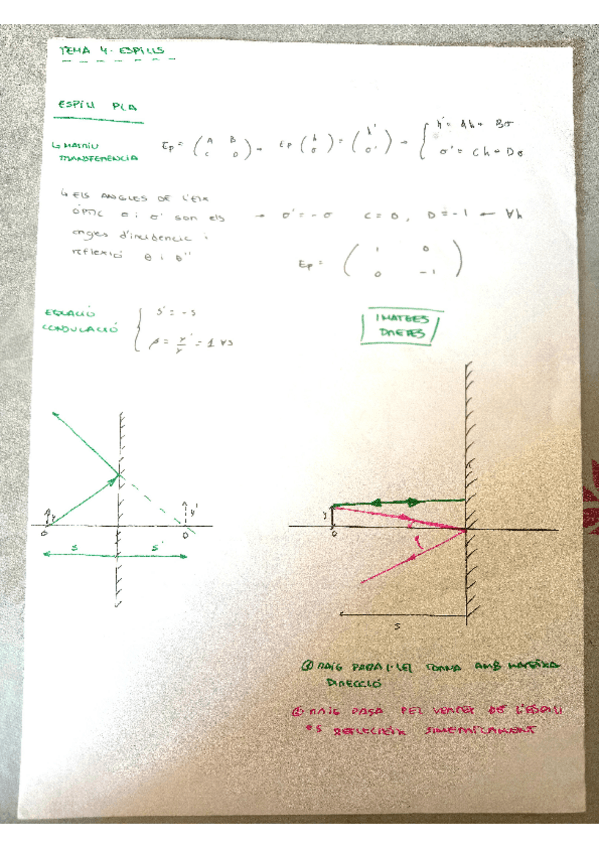 TEMA 4. ESPILLS
ESPILL PLA
↳ MATRIU TRANSFERÈNCIA
Ep = ( A B C D ) → Ep ( h σ ) = ( h' σ' ) → { h' = Ah + Bσ
σ' = Ch + Dσ
↳ ELS ANGLES DE L'EIX
ÒPTIC σ i σ' són els → σ' = -σ C = 0, D = -1 ← ∀h
angles d'incidència i
reflexió θ i θ''
Ep = ( 1 0 0 -1 )
EQUACIÓ
CONJUGACIÓ
{ s' = -s
β = y'/y = 1 ∀s
IMATGES
DRETES
y
y'
O
O'
s
s'
y
O
s
① RAIG PARAL·LEL TORNA AMB MATEIXA
DIRECCIÓ
② RAIG PASA PEL VERTEX DE L'ESPILL
ES REFLECTEIX SIMETRICAMENT